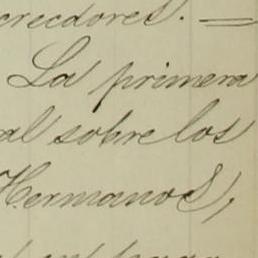 creedores. =
La primera
al sobre los
Hermanos,